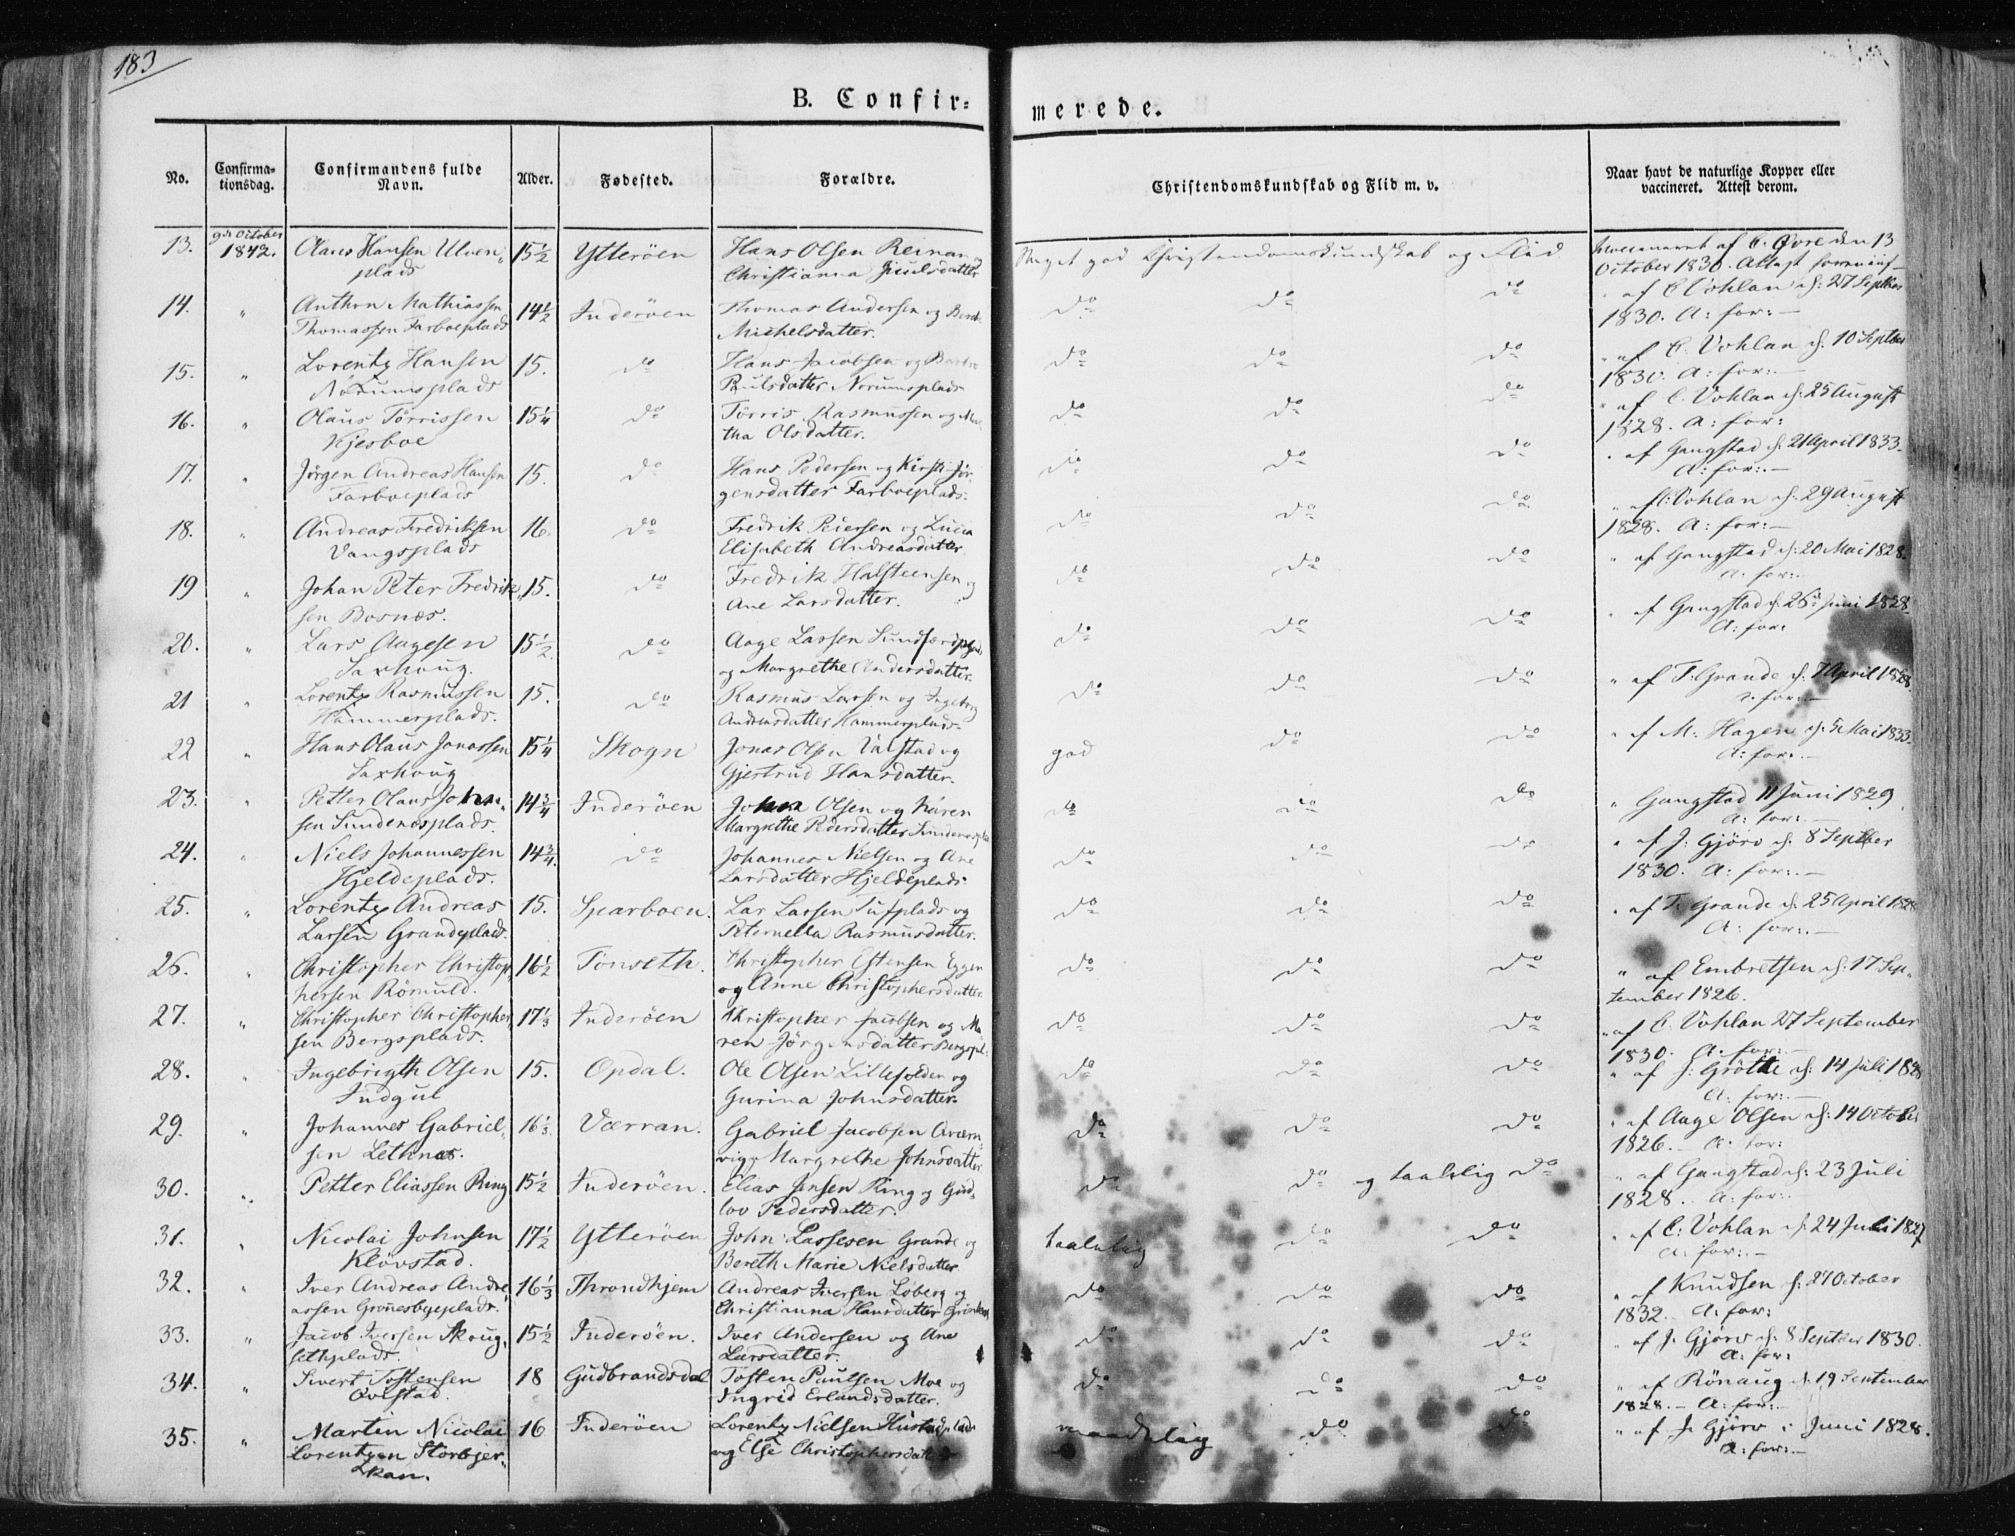 183
B. Confir-
merede.
No.
Confirma-
tionsdag.
Confirmandens fulde
Navn.
Alder.
Fødested.
Forældre.
Christendomskundskab og Flid m. v.
Naar havt de naturlige Kopper eller
vaccineret. Attest derom.
13. 9de October 1842. Olaus Hansen Ulven- 15½ Ytterøen Hans Olsen Reinan og Meget god Christendomskundskab og Flid af C. Øvre den 13
plads Christianna Juulsdatter October 1830. Attest
14. " Anthon Mathiassen 14½ Inderøen Thomas Andersen og do do do " af C Vohlan d: 27 Septber
Thomassen Farboeplads Michelsdatter. 1830. A: for:
15. " Lorentz Hansen 15. do Hans Jacobsen og do do do " af C. Vohlan d. 10 Septber
Norumsplads Paulsdatter Norumsplads 1830. A: for:
16. " Olaus Tørrissen 15¼ do Tørris Rasmussen og Ma- do do do " af C. Vohlan d: 25 August
Kjesboe tha Olsdatter. 1828. A: for:
17. " Jørgen Andreas Hansen 15. do Hans Pedersen og Kirsti Jør- do do do " af Gangstad d: 21 April 1833
Farboeplads gensdatter Farboeplads. A: for:
18. " Andreas Fredriksen 16. do Fredrik Petersen og Lucia do do do " af C: Vohlan d: 29 August
Vangsplads Elisabeth Andreasdatter. 1828. A: for:
19 " Johan Peter Fredrik- 15. do Fredrik Halsteensen og do do do " af Gangstad d: 20 Mai 1828.
sen Bosnæs. Ane Larsdatter. A: for:
20. " Lars Aagesen 15½ do Aage Lassen do do do " af Gangstad d. 26 Juni 1828.
Saxhoug. og Margrethe Andersdatter. A: for:
21 " Lorentz Rasmussen 15. do Rasmus Larsen og Ingeborg do do do " af T: Grande d. 7 April 1828.
Hammerplads. Andreasdatter Hammerplads. A: for:
22 " Hans Olaus Jonassen 15¼ Skogn Jonas Olsen Valstad og god do do " af M. Hagen d. 5 Mai 1833.
Saxhoug Gjertrud Hansdatter. A: for:
23. " Petter Olaus Johan- 14¾ Inderøen Johan Olsen og Karen do do do " Gangstad 11 Juni 1829
sen Sundenesplads. Margrethe Pedersdatter A: for:
24. " Niels Johannessen 14¾ do Johannes Nielsen og Ane do do do " af J. Gjørv d. 8 Septber
Hjeldeplads. Larsdatter Hjeldeplads. 1830. A: for:
25. " Lorentz Andreas 15. Sparboen. Lars Larsen Tufplads og do do do " af T: Grande d: 25 April 1828
Larsen Grandeplads. Peternella Rasmusdatter. A: for:
26. " Christopher Christop- 16½ Tønseth. Christopher Estensen Eggen do do do " af Embretsen d: 17 Sep-
hersen Römuld. og Anne Christophersdatter. tember 1826.
27. " Christopher Christopher- 17⅓ Inderøen Christopher Jacobsen og Ma- do do do " af C. Vohlan 27 September
sen Bergsplads. ren Jørgensdatter Bergspl: 1830. A: for:
28. " Ingebrigth Olsen 15. Opdal. Ole Olsen Lillefolden og do do do " af J: Grötte d: 14 Juli 1828
Indgul Gurina Johnsdatter. A: for:
29. " Johannes Gabriel- 16⅓ Værran. Gabriel Jacobsen do do do " af Aage Olsen d: 14 October
sen Lethnæs. Margrethe Johnsdatter 1826. A: for:
30. " Petter Eliassen Ring 15½ Inderøen. Elias Jensen Ring og Gud- do do og taalelig do " af Gangstad d: 23 Juli
lov Pedersdatter. 1828. A: for:
31. " Nicolai Johnsen 17½ Ytterøen John Lassesen Grande og taalelig do do " af C: Vohlan d. 24 Juli 1827
Klövstad. Bereth Marie Nielsdatter A: for:
32. " Iver Andreas Andre- 16⅓ Throndhjem Andreas Iversen Løberg og do do do " af Knudsen d: 27 October
assen Grønesbyeplads. Christianna Hansdatter 1832. A: for:
33. " Jacob Iversen Skoug- 15½ Inderøen. Iver Andersen og Ane do do do " af J. Gjørv d. 8 Septber 1830.
sethplads. Larsdatter. A: for:
34. " Sivert Tostensen 18 Gudbrandsdal Tosten Paulsen Moe og do do do " af Rönaug d. 19 September
Qvistad. Ingrid Erlandsdatter. 1828. A: for:
35. " Martin Nicolai 16 Inderøen Lorentz Nielsen Hustadplads maadelig do do " af J. Gjørv i Juni 1828.
Lorentzen Storbjer- og Else Christophersdatter A: for:
kan.